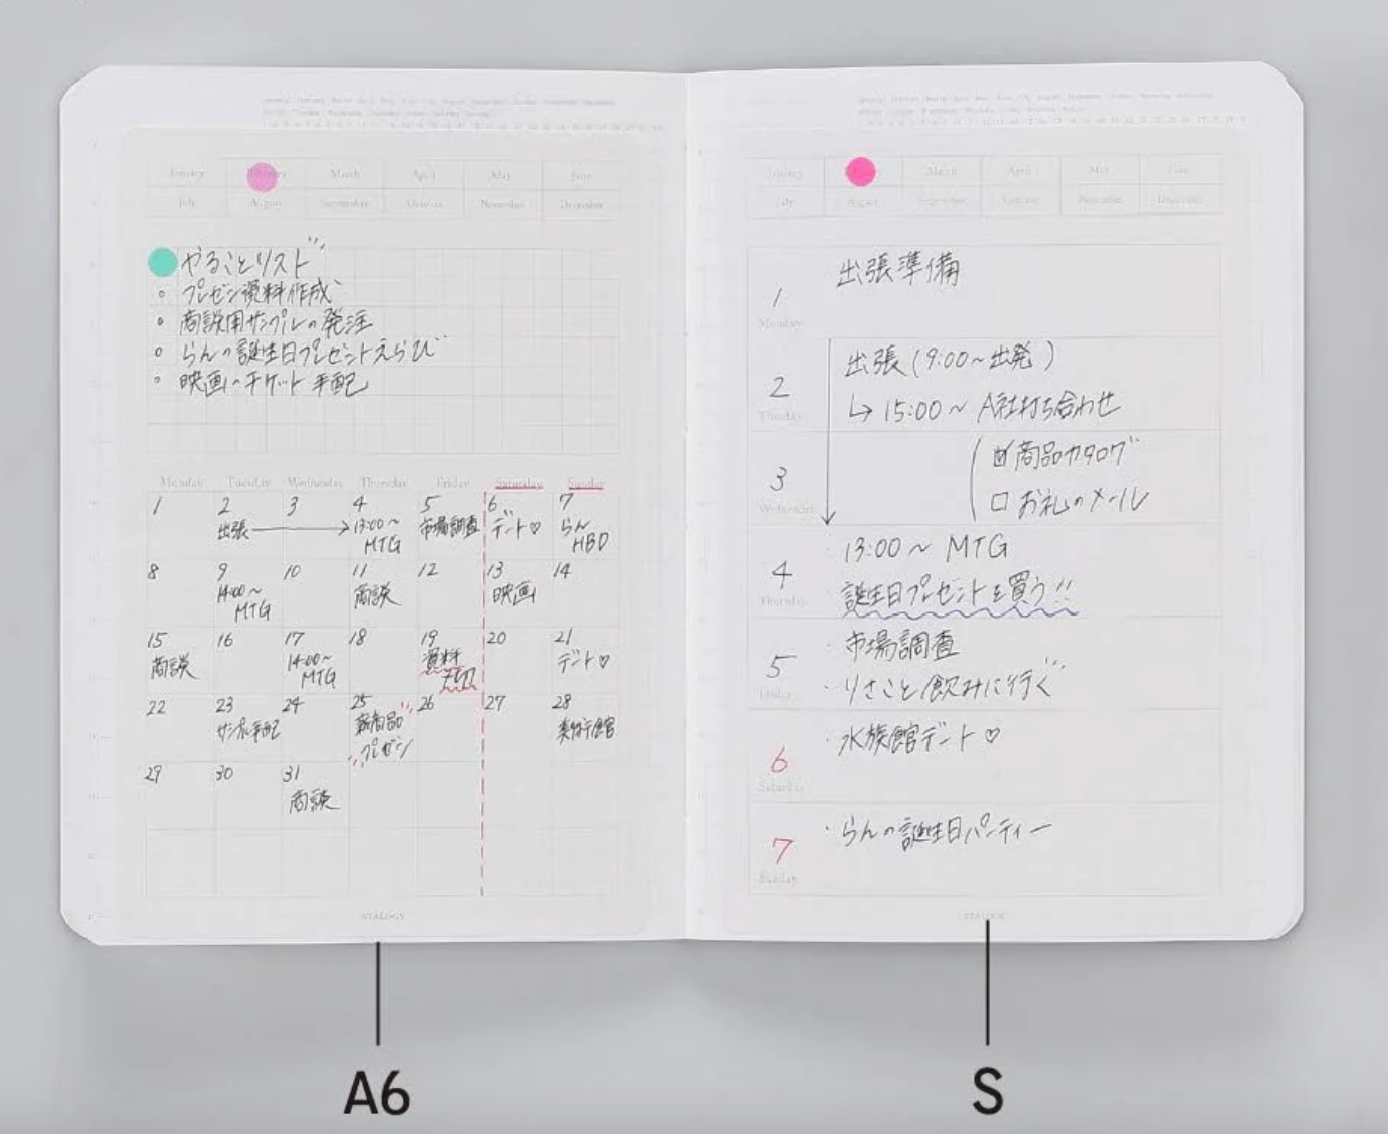 January February March April May June
July August September October November December
やることリスト
プレゼン資料作成
商談用サンプルの発注
らんの誕生日プレゼントえらび
映画のチケット手配
Monday Tuesday Wednesday Thursday Friday Saturday Sunday
1 2 3 4 5 6 7
出張 → 13:00~ MTG 市場調査 デート♡ らん HBD
8 9 10 11 12 13 14
14:00~ MTG 商談 映画
15 16 17 18 19 20 21
商談 14:00~ MTG 資料 デート♡
22 23 24 25 26 27 28
新商品 プレゼン 美術館
29 30 31
商談
STALOGY
A6
January March April May June
July August September October November December
1 Monday
出張準備
2 Tuesday
出張(9:00~出発)
↳ 15:00~ A社打ち合わせ
3 Wednesday
☑ 商品カタログ
□ お礼のメール
4 Thursday
・13:00~ MTG
・誕生日プレゼントを買う!!
5 Friday
・市場調査
・りさこと飲みに行く
6 Saturday
・水族館デート♡
7 Sunday
・らんの誕生日パーティー
STALOGY
S